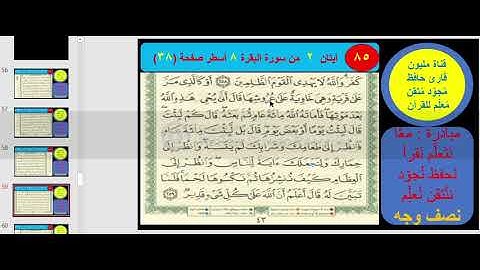 ٨٥
آيتان ٢ من سورة البقرة ٨ أسطر صفحة (٣٨)
كَفَرَ وَاللَّهُ لَا يَهْدِي الْقَوْمَ الظَّالِمِينَ ٢٥٨ أَوْ كَالَّذِي مَرَّ
عَلَى قَرْيَةٍ وَهِيَ خَاوِيَةٌ عَلَى عُرُوشِهَا قَالَ أَنَّى يُحْيِي هَذِهِ اللَّهُ
بَعْدَ مَوْتِهَا فَأَمَاتَهُ اللَّهُ مِائَةَ عَامٍ ثُمَّ بَعَثَهُ قَالَ كَمْ لَبِثْتَ
قَالَ لَبِثْتُ يَوْمًا أَوْ بَعْضَ يَوْمٍ قَالَ بَل لَّبِثْتَ مِائَةَ عَامٍ
فَانظُرْ إِلَى طَعَامِكَ وَشَرَابِكَ لَمْ يَتَسَنَّهْ وَانظُرْ إِلَى
حِمَارِكَ وَلِنَجْعَلَكَ آيَةً لِّلنَّاسِ وَانظُرْ إِلَى
الْعِظَامِ كَيْفَ نُنشِزُهَا ثُمَّ نَكْسُوهَا لَحْمًا فَلَمَّا
تَبَيَّنَ لَهُ قَالَ أَعْلَمُ أَنَّ اللَّهَ عَلَى كُلِّ شَيْءٍ قَدِيرٌ ٢٥٩
٤٣
قناة مليون
قارئ حافظ
مُجوِّد مُتقن
مُعلِّم للقرآن
مبادرة : معًا
نتعلّم نقرأ
نحفظ نُجوّد
نُتقن نُعلّم
نصف وجه
56
57
58
59
60